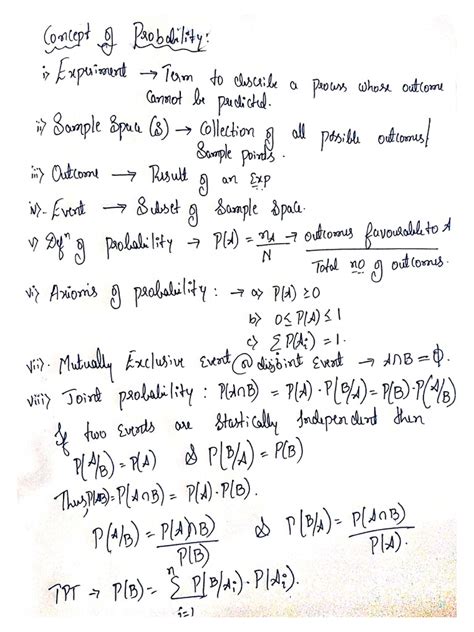 Concept of Probability:
i) Experiment → Term to describe a process whose outcome
cannot be predicted.
ii) Sample Space (S) → Collection of all possible outcomes/
Sample points.
iii) Outcome → Result of an Exp
iv). Event → Subset of Sample Space.
v) Defn of probability → P(A) = nA/N → outcomes favourable to A / Total no of outcomes.
vi) Axioms of probability : → a) P(A) ≥ 0
b) 0 ≤ P(A) ≤ 1
c) Σ P(Ai) = 1.
vii). Mutually Exclusive Event (or) disjoint Event → A∩B = Φ.
viii) Joint probability : P(A∩B) = P(A) · P(B/A) = P(B) · P(A/B)
If two Events are Stastically Independent then
P(A/B) = P(A) & P(B/A) = P(B)
Thus, P(AB) = P(A∩B) = P(A) · P(B).
P(A/B) = P(A∩B)/P(B) & P(B/A) = P(A∩B)/P(A).
TPT → P(B) = Σ i=1 n P(B/Ai) · P(Ai).